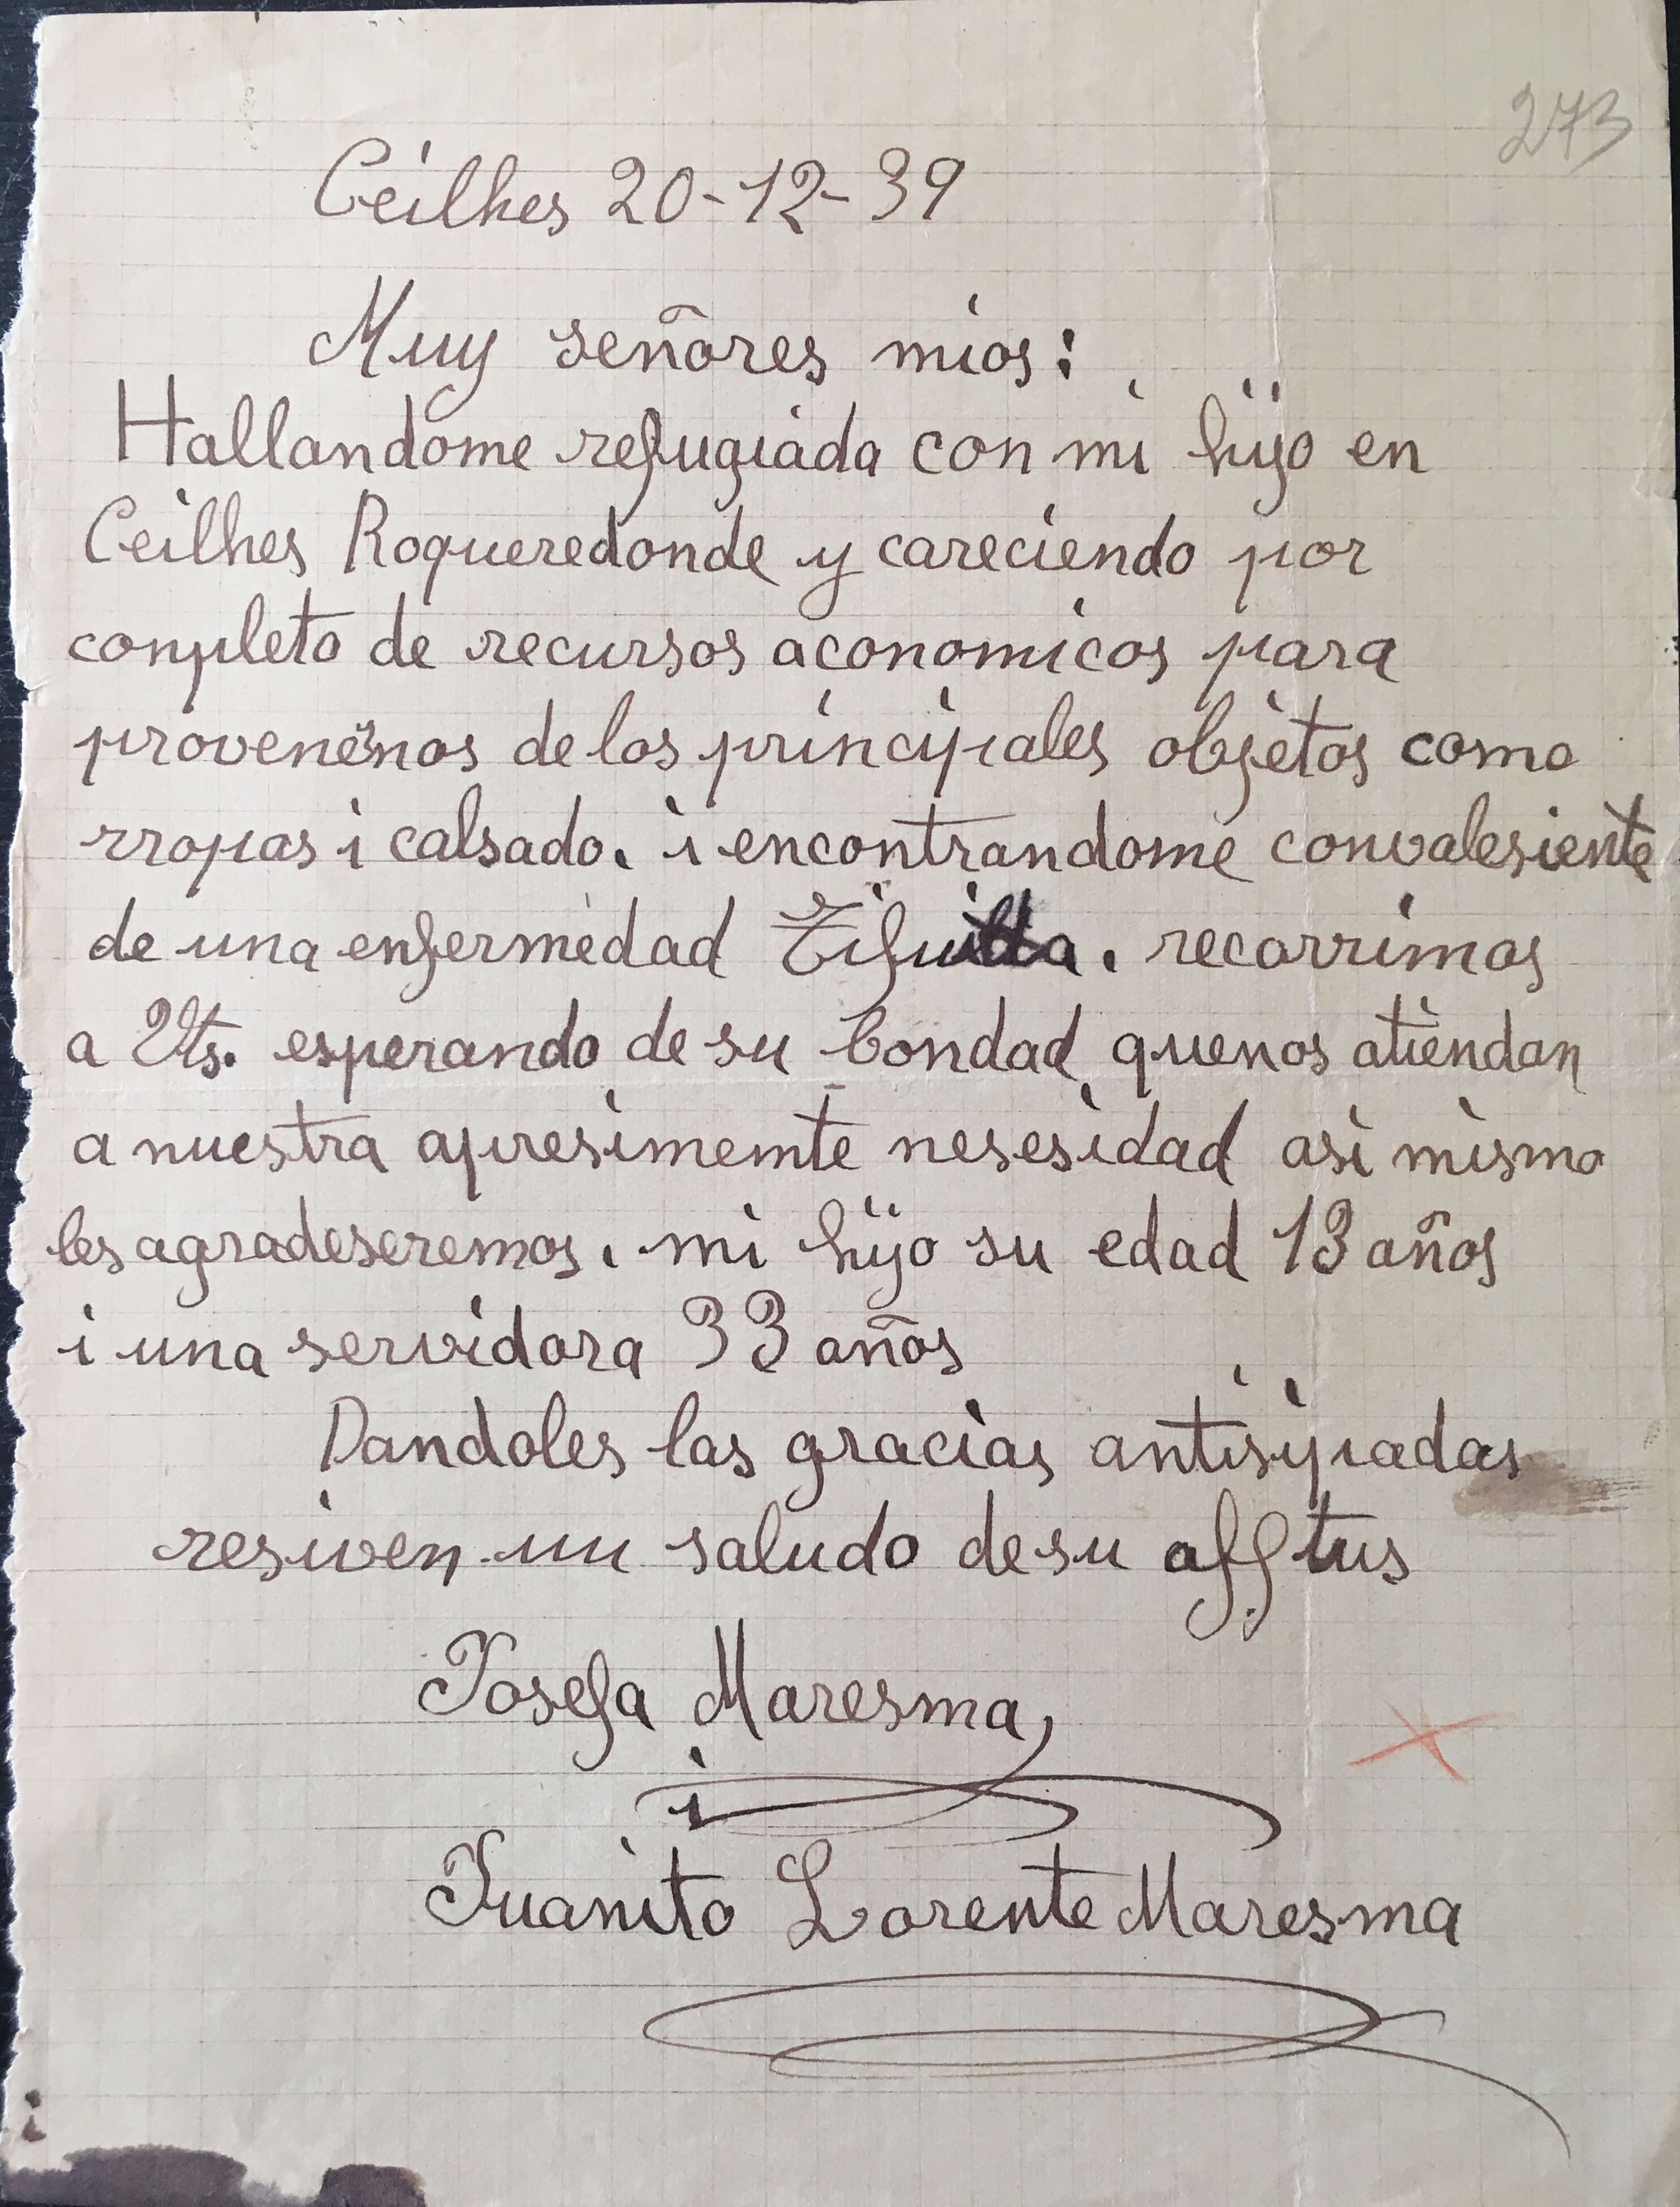 273
Ceilhes 20-12-39
Muy señores mios:
Hallandome refugiada con mi hijo en
Ceilhes Roqueredonde y careciendo por
conpleto de recursos aconomicos para
de los principales objetos como
rropas i calsado. i encontrandome convalesiente
de una enfermedad . recorrimos
a Vts. esperando de su bondad quenos atiendan
a nuestra apresimemte nesesidad asi mismo
les agradeseremos. mi hijo su edad 13 años
i una servidora 33 años
Dandoles las gracias antisipadas
resiven un saludo de su afftus
Josefa Maresma
i
Juanito Lorente Maresma